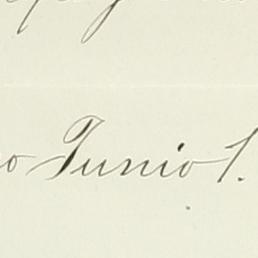 Junio 1.